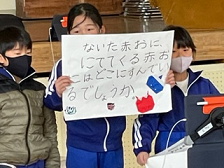 ないた赤おに、
にでてくる赤お
にはどこにすんでい
るでしょうか